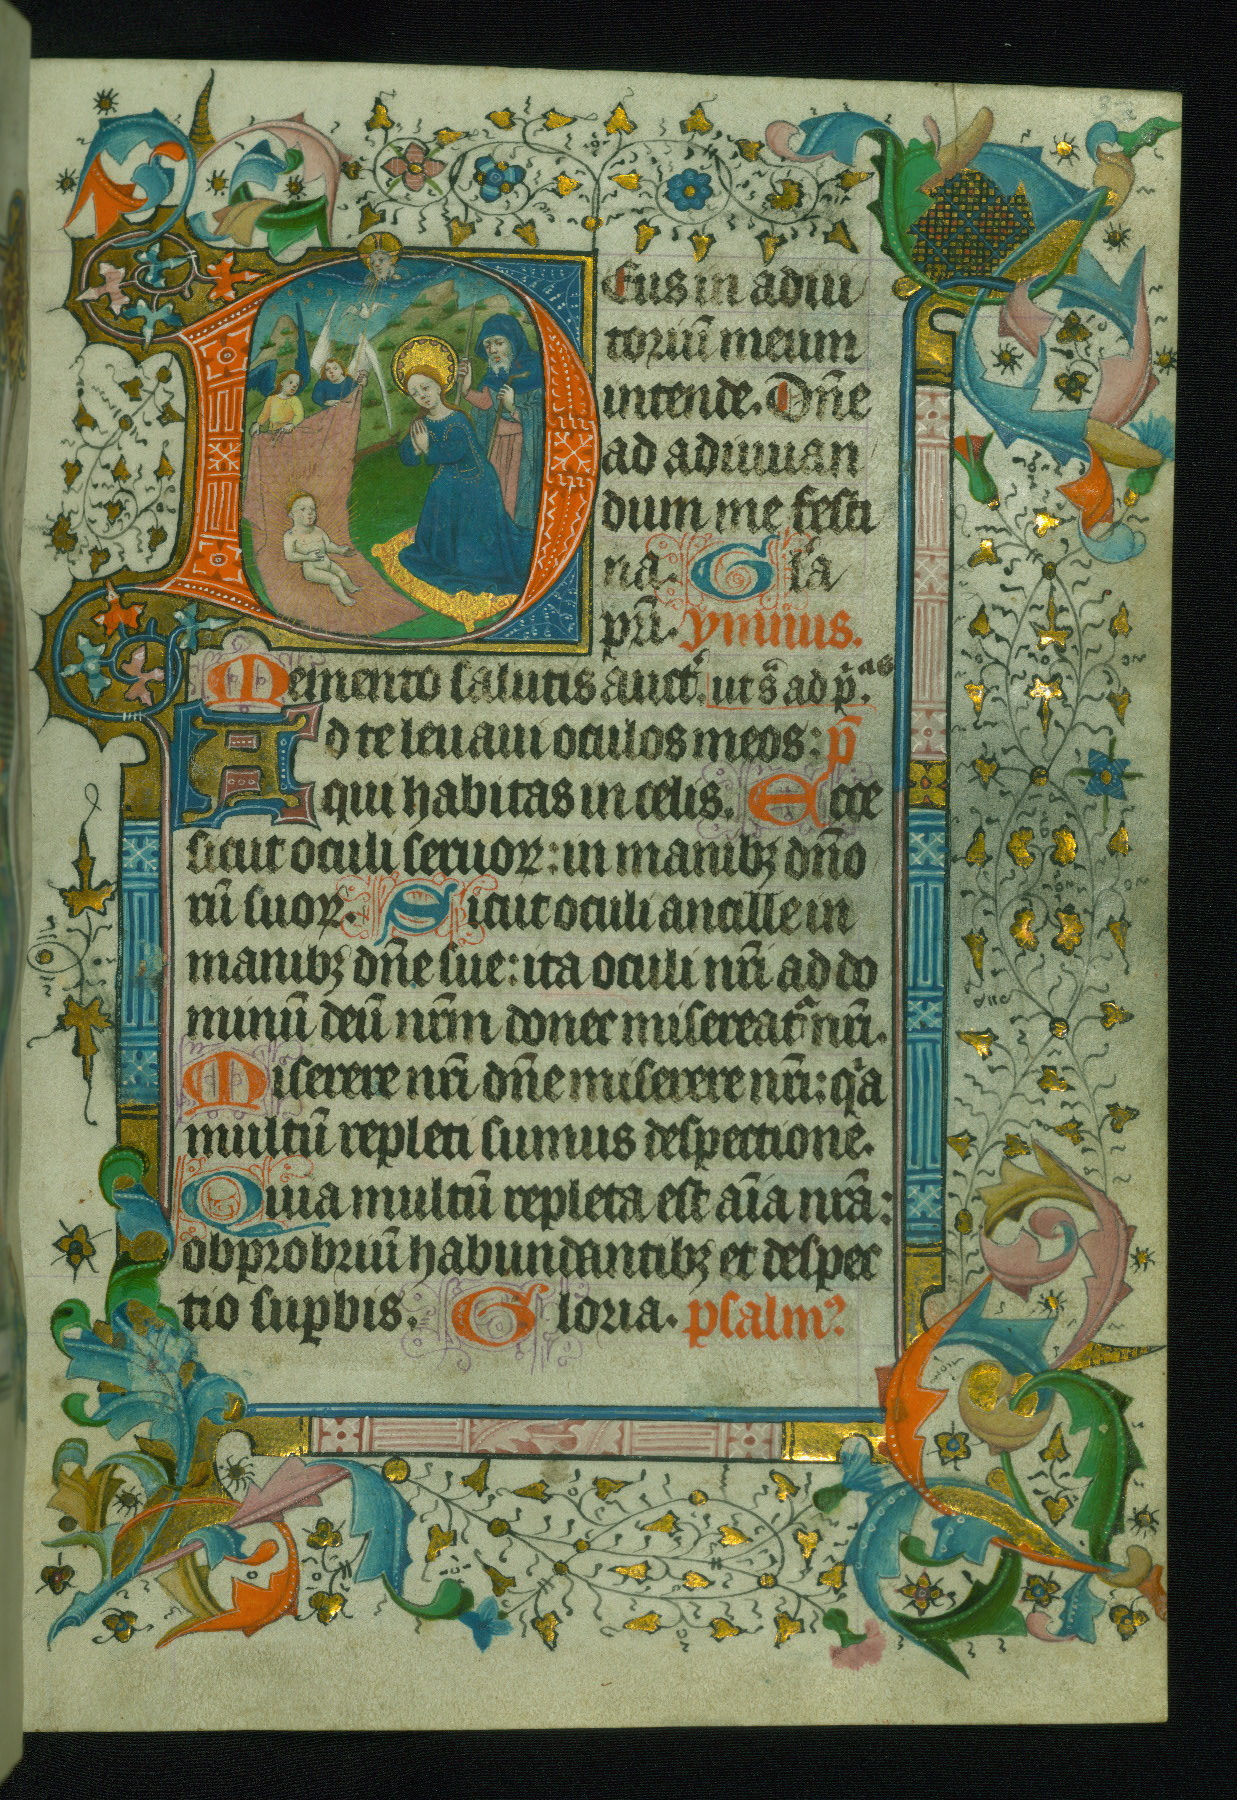 Deus in adiu
toriū meum
intende. Dn̄e
ad adiuuan
dum me festi
na. Gl'a
pr̄i. ymnus.
Memento salutis auct'. ut s̄ ad p̄.as
Ad te leuaui oculos meos: p̄
qui habitas in celis. Ecce
sicut oculi seruoꝝ: in manibꝫ dn̄o
rū suoꝝ. Sicut oculi ancille in
manibꝫ dn̄e sue: ita oculi nr̄i ad do
minū deū nr̄m donec misereat' nr̄i.
Miserere nr̄i dn̄e miserere nr̄i: q'a
multū repleti sumus despectione.
Quia multū repleta est aīa nr̄a:
obprobriū habundantibꝫ et despec
tio suꝑbis. Gloria. psalm'